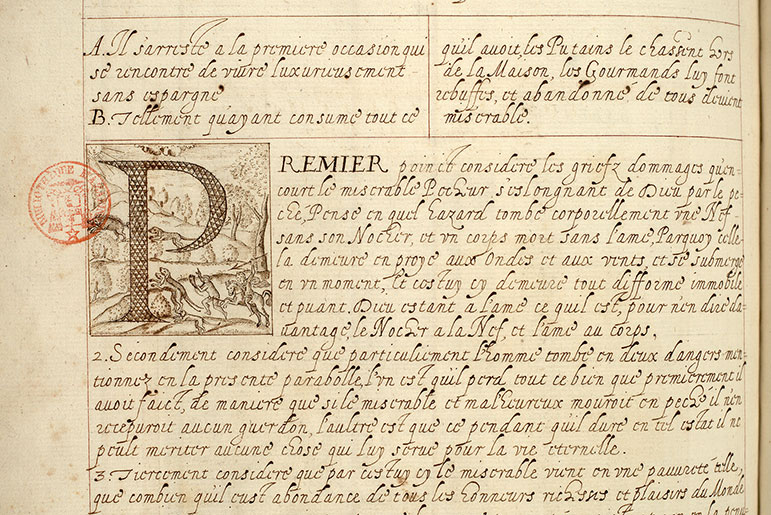 A. Il s'arreste a la premiere occasion qui
se rencontre de vivre luxurieusement
sans espargne
B. Tellement qu'ayant consumé tout ce
qu'il avoit, les Putains le chassent hors
de la Maison, les Gourmands luy font
rebuffes, et abandonné de tous devient
miserable.
PREMIER poinct considere les griefz dommages qu'en-
court le miserable Pecheur s'eslongnant de Dieu par le pe-
ché, Pense en quel hazard tombe corporellement vne Nef
sans son Nocher, et vn corps mort sans l'ame, Parquoy celle
la demeure en proye aux Ondes et aux vents, et se submerge
en vn moment, Et cestuy cy demeure tout difforme immobile
et puant. Dieu estant a l'ame ce qu'il est, pour n'en dire da-
uantage, le Nocher a la Nef, et l'ame au corps.
2. Secondement considere que particulieremt l'homme tombe en deux dangers men-
tionnez en la presente parabolle, l'vn est qu'il perd tout ce bien que premierement il
avoit faict, de maniere que si le miserable et malheureux mouroit en peché il n'en
recepuroit aucun guerdon, l'aultre est que ce pendant qu'il dure en tel estat il ne
peult meriter aucune chose qui luy serue pour la vie eternelle.
3. Tiercement considere que par cestuy cy le miserable vient en vne pauureté telle,
que combien qu'il eust abondance de tous les honneurs richesses et plaisirs du Monde